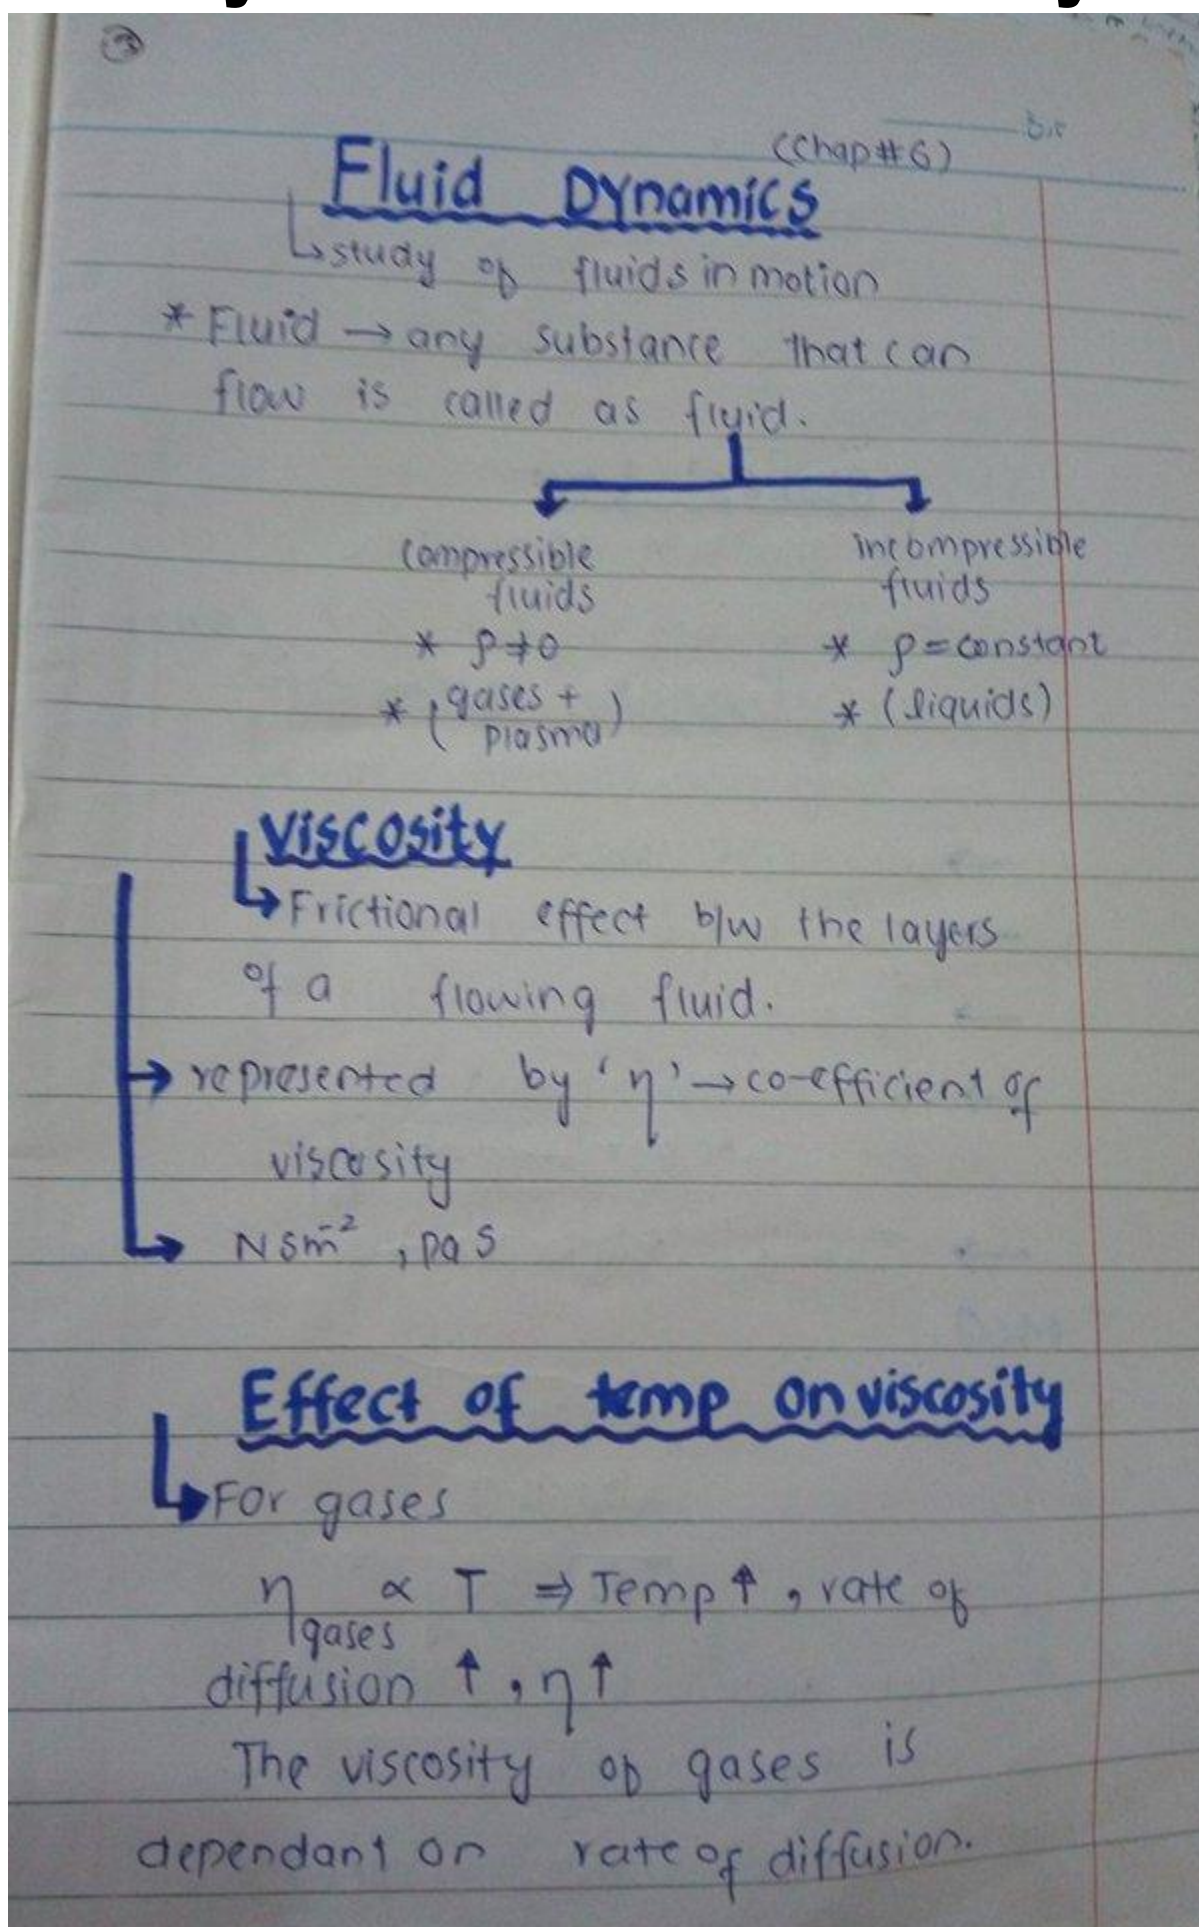 (Chap#6)
Fluid Dynamics
↳study of fluids in motion
* Fluid → any substance that can
flow is called as fluid.
compressible incompressible
fluids fluids
* ρ≠0 * ρ=constant
* (gases + * (liquids)
plasma)
Viscosity
↳Frictional effect b/w the layers
of a flowing fluid.
→ represented by 'η' → co-efficient of
viscosity
→ Nsm⁻², pa s
Effect of temp on viscosity
↳For gases
η gases ∝ T ⇒ Temp↑, rate of
diffusion ↑, η↑
The viscosity of gases is
dependant on rate of diffusion.